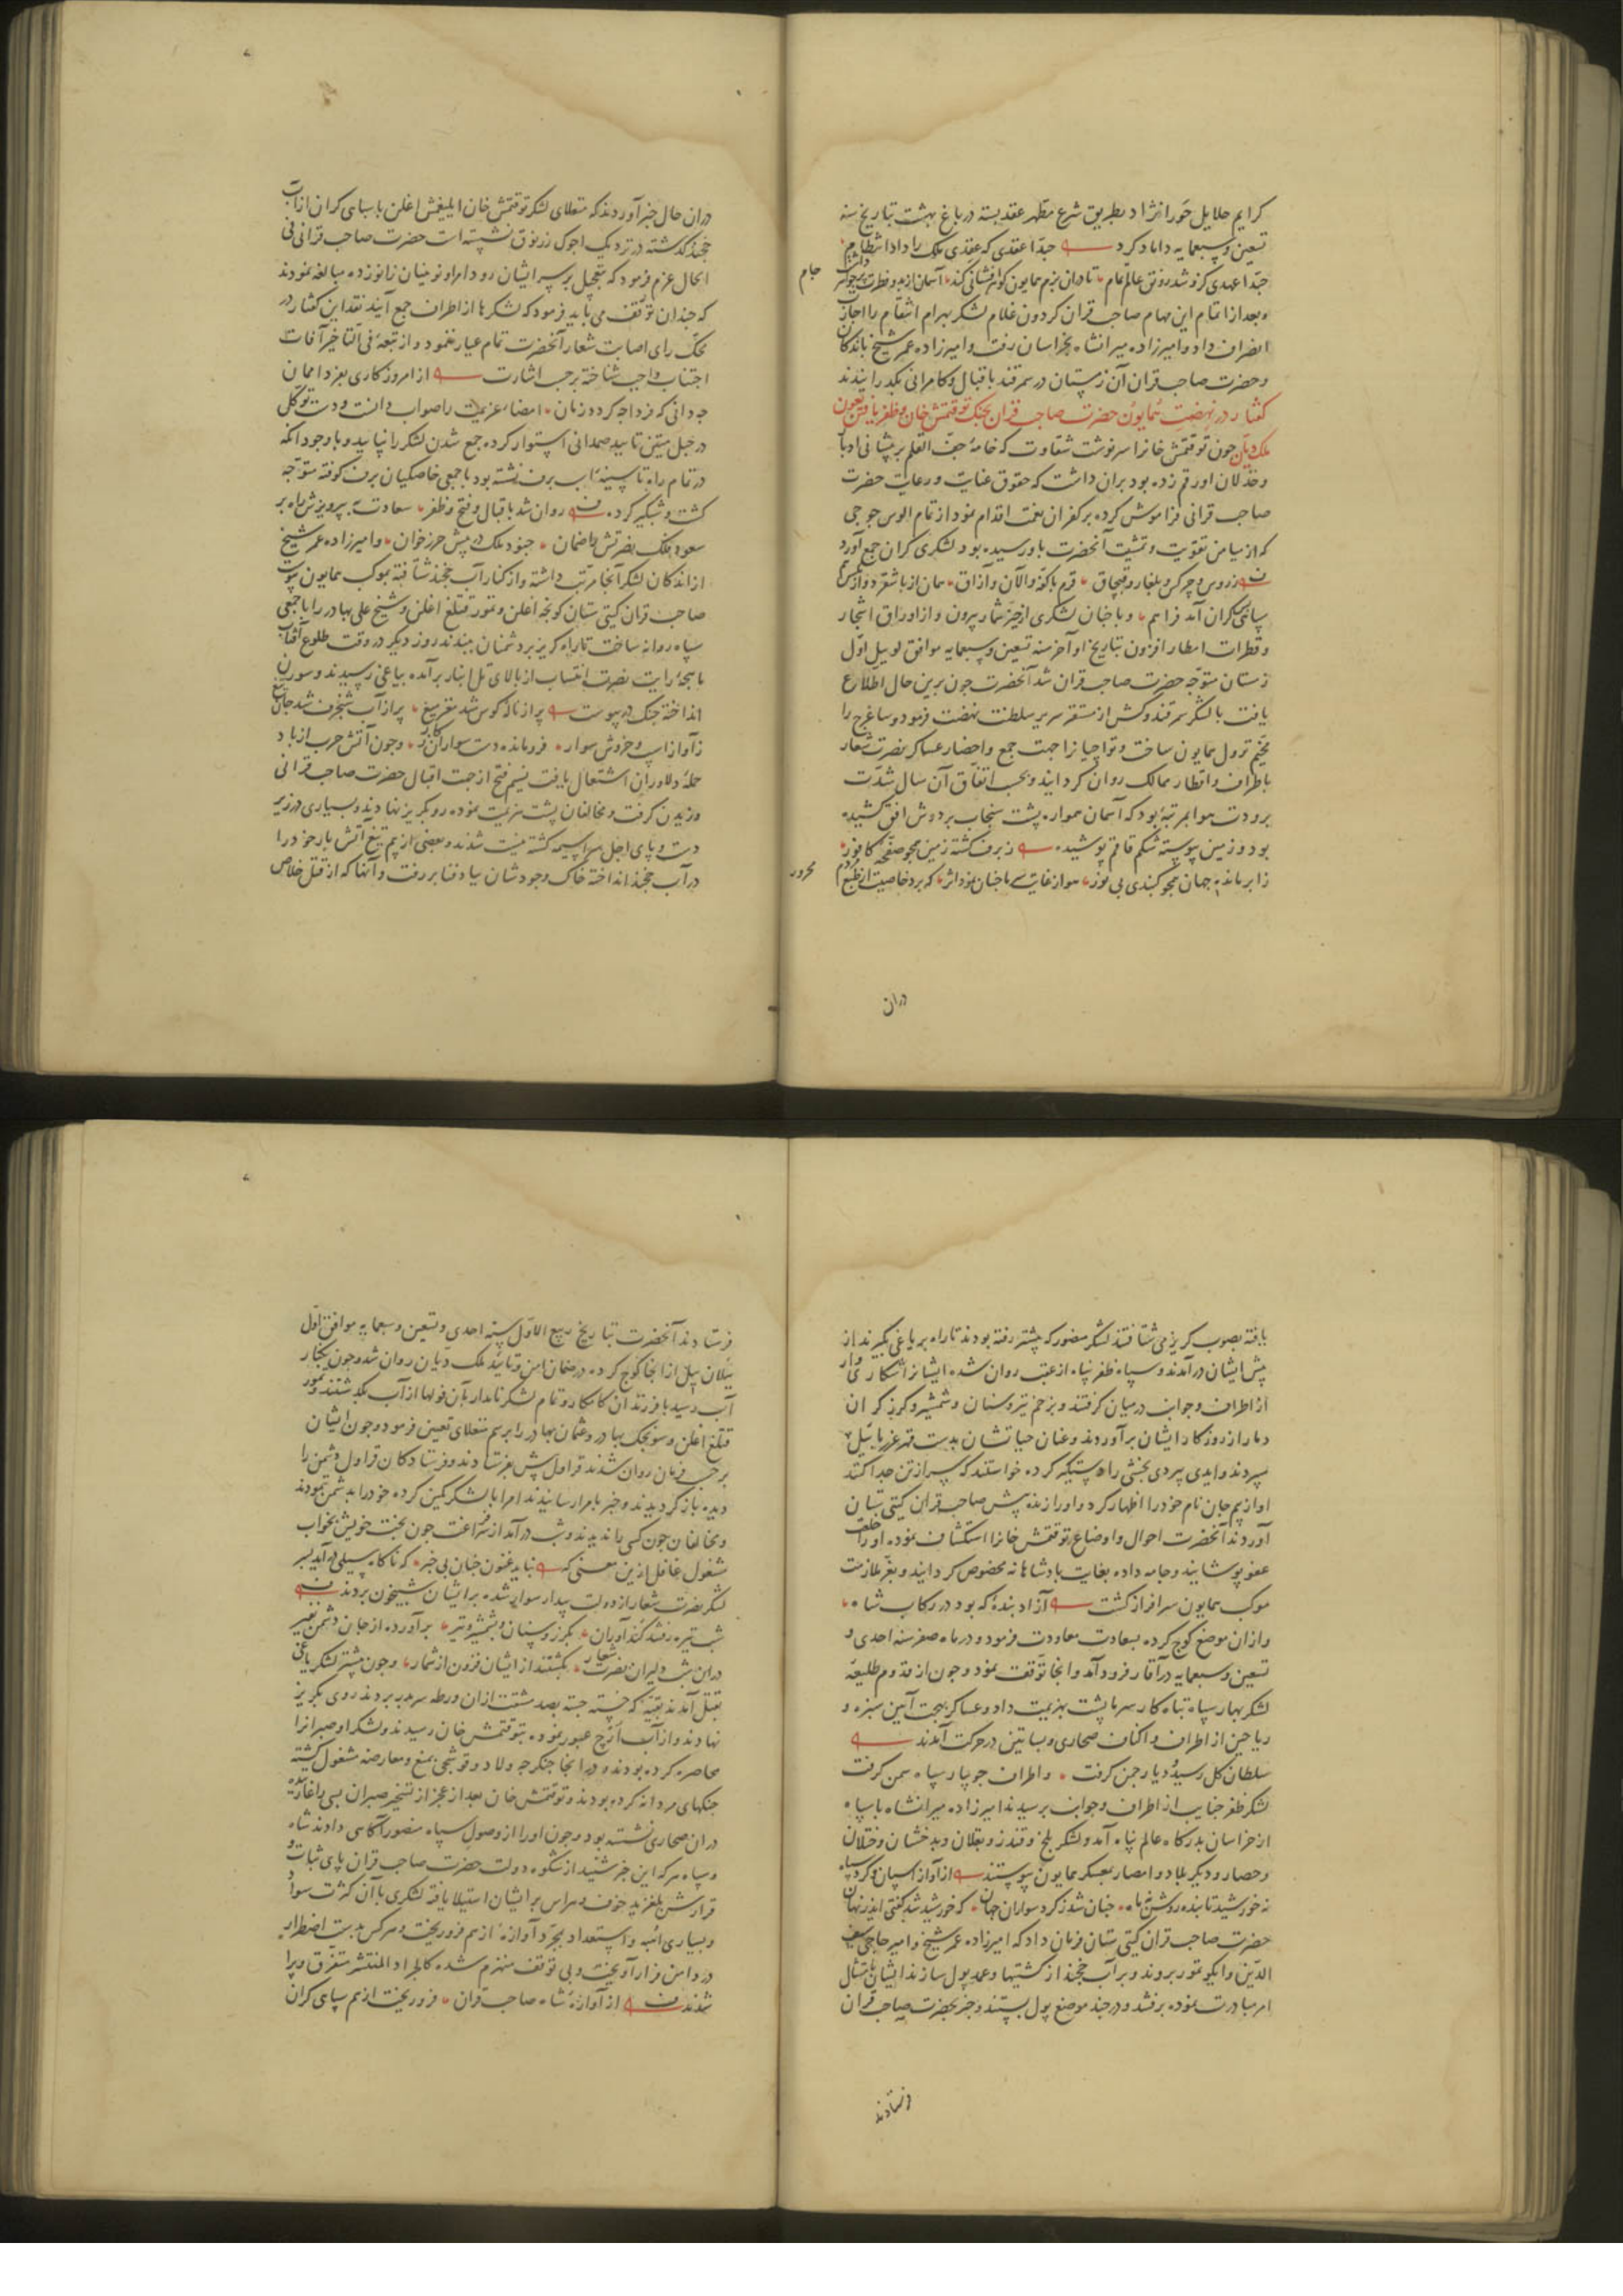 کرایم جلایل حورانژاد بطریق شرع مطهر عقد بسته در باغ بهشت بتاریخ سنه
تسعین و سبعمایه داماد کرد حبّذا عقدی که عقدی ملک را داد انتظام
حبّذا عهدی کزو شد رونق عالم تمام تا دران بزم همایون گوهر افشانی کند آسمان از بدو فطرت پر جواهر داشت
جام
و بعد از اتمام این مهام صاحب قران کردون غلام لشکر بهرام انتقام را اجازت
انصراف داد و امیرزاده میرانشاه بخراسان رفت و امیرزاده عمر شیخ باندکان
و حضرت صاحب قران آن زمستان در سمرقند باقبال و کامرانی بکذرانیدند
کفتار در نهضت همایون حضرت صاحب قران بجنک توقتمش خان و ظفر یافتن بعون
ملک دیّان جون توقتمش خانرا سرنوشت شقاوت که خامهٔ جفّ القلم بر پیشانی ادبار
و خذلان او رقم زده بود بران داشت که حقوق عنایت و رعایت حضرت
صاحب قرانی فراموش کرده بر کفران نعمت اقدام نمود از تمام الوس جوجی
که از میامن تقویت و تمشیت آنحضرت باو رسیده بود لشکری کران جمع آورد
ز روس و جرکس و بلغار و قبجاق قرم با کفه و الان و آزاق همان از باشقرد و از
سپاهی بیکران آمد فراهم و با جنان لشکری از حیّز شمار بیرون و از اوراق اشجار
و قطرات امطار افزون بتاریخ اواخر سنه تسعین و سبعمایه موافق لوییل اوّل
زمستان متوجّه حضرت صاحب قران شد آنحضرت جون برین حال اطلاع
یافت با لشکر سمرقند و کش از مستقر سریر سلطنت نهضت فرمود و ساغرج را
مخیّم نزول همایون ساخت و تواجیانرا جهت جمع و احضار عساکر نصرت شعار
باطراف و اقطار ممالک روان کردانید و بحسب اتفاق آن سال شدّت
برودت هوا بمرتبهٔ بود که آسمان همواره پشت سنجاب بر دوش افق کشیده
بود و زمین پیوسته شکم قاقم پوشیده ز برف کشته زمین همجو صفحهٔ کافور
ز ابر مانده جهان همجو کنبدی بی نور هوا ز غایت سرما جنان نمود اثر که برد خاصیت از طبع مردم
محرور
دران
دران حال خبر آوردند که منقلای لشکر توقتمش خان ایلیغمش اغلن با سپاهی کران از آب
خجند کذشته در نزدیک اجوک زرنوق نشسته است حضرت صاحب قرانی فی
الحال عزم فرمود که بتعجیل بر سر ایشان رود امرا و نوینیان زانو زده مبالغه نمودند
که جندان توقف می باید فرمود که لشکرها از اطراف جمع آیند نقد این کفتار در
محک رای اصابت شعار آنحضرت تمام عیار ننمود و از تبعهٔ فی التاخیر آفات
اجتناب واجب شناخته بر حسب اشارت از امروز کاری بفردا ممان
جه دانی که فردا جه کردد زمان امضاء عزیمت را صواب دانست و دست توکّل
در حبل متین تایید صمدانی استوار کرده جمع شدن لشکر را نپایید و با وجود انکه
در تمام راه تا سینهٔ اسب برف نشسته بود با جمعی خاصکیان برف کوفته متوجه
کشت و شبکیر کرد روان شد باقبال و فتح و ظفر سعادت به پیرویزش راه بر
سعود فلک نصرتش را ضمان جنود ملک در پیش حرزخوان و امیرزاده عمر شیخ
از اندکان لشکر آنجا مرتب داشته و از کنار آب خجند شتافته بموکب همایون پیوست
صاحب قران کیتی ستان کونجه اغلن و تمور قتلغ اغلن و شیخ علی بهادر را با جمعی
سپاه روانه ساخت تا راه کریز بر دشمنان ببندند روز دیکر در وقت طلوع آفتاب
ماهجهٔ رایت نصرت انتساب از بالای تل انبار برآمده بیاغی رسیدند و سورن
انداخته جنک در پیوست پر از نالهٔ کوس شد مغز میغ پر از آب شنجرف شد جان تیغ
ز آواز اسب و خروش سوار فرو مانده دست سواران ز کار و جون آتش حرب از باد
حملهٔ دلاوران اشتعال یافت نسیم فتح از جهت اقبال حضرت صاحب قرانی
وزیدن کرفت و مخالفان پشت بهزیمت نموده رو بکریز نهادند و بسیاری در زیر
دست و پای اجل سراسیمه کشته نیست شدند و بعضی از بیم تیغ آتش بار خود را
در آب خجند انداخته خاک وجودشان بباد فنا بر رفت و آنها که از قتل خلاص
یافته بصوب کریز می شتافتند لشکر منصور که پیشتر رفته بودند تا راه بر یاغی بکیرند از
پیش ایشان درآمدند و سپاه ظفر پناه از عقب روان شده ایشانرا شکاری وار
از اطراف و جوانب در میان کرفتند و بزخم تیر و سنان و شمشیر و کرز کران
دمار از روزکار ایشان برآوردند و عنان حیاتشان بدست قهر عزراییل
سپردند و ایدی پیردی بخشی را دستکیر کرده خواستند که سر از تن جدا کنند
او از بیم جان نام خود را اظهار کرد و او را زنده پیش صاحب قران کیتی ستان
آوردند آنحضرت احوال و اوضاع توقتمش خانرا استکشاف نموده او را خلعت
عفو پوشانید و جامه داده بغایت بادشاهانه مخصوص کردانید و بعزّ ملازمت
موکب همایون سرافراز کشت آزاد بندهٔ که بود در رکاب شاه
و ازان موضع کوچ کرده بسعادت معاودت فرمود و در ماه صفر سنه احدی و
تسعین و سبعمایه در آقار فرود آمد و انجا توقف نمود و جون از قدوم طلیعهٔ
لشکر بهار سپاه تباه کار سرما پشت بهزیمت داد و عساکر بهجت آیین سبزه و
ریاحین از اطراف و اکناف صحاری و بساتین در حرکت آمدند
سلطان کل رسید و دیار چمن کرفت و اطراف جویبار سپاه سمن کرفت
لشکر ظفر جناب از اطراف و جوانب برسیدند امیرزاده میرانشاه با سپاه
از خراسان بدرکاه عالم پناه آمد و لشکر بلخ و قندز و بقلان و بدخشان و ختلان
و حصار و دیکر بلاد و امصار بمعسکر همایون پیوستند از آواز اسپان و کرد سپاه
نه خورشید تابنده روشن نه ماه جنان شد ز کرد سواران جهان که خورشید شد کفتی اندر نهان
حضرت صاحب قران کیتی ستان فرمان داد که امیرزاده عمر شیخ و امیر حاجی سیف
الدّین و ایکو تمور بروند و بر آب خجند از کشتیها و عمد پول سازند ایشان بامتثال
امر مبادرت نموده برفتند و در جند موضع پول بستند و خبر بحضرت صاحب قران
فرستادند
فرستادند آنحضرت بتاریخ ربیع الاوّل سنه احدی و تسعین و سبعمایه موافق اوّل
ییلان ییل از انجا کوج کرده در ضمان امن و تایید ملک دیّان روان شد و جون بکنار
آب رسید با فرزندان کامکار و تمام لشکر نامدار بآن پولها از آب بکذشتند و تمور
قتلغ اغلن و سونجک بهادر و عثمان بهادر را برسم منقلای تعیین فرمود و جون ایشان
بر حسب فرمان روان شدند قراول پیش بفرستادند و فرستادکان قراول دشمن را
دیده باز کردیدند و خبر بامرا رسانیدند امرا با لشکر کمین کرده خود را بدشمن ننمودند
و مخالفان جون کسی را ندیدند شب درآمد از سر فراغت جون بخت خویش بخواب
مشغول غافل ازین معنی که نباید غنودن جنان بی خبر که ناکاه سیلی درآید بسر
لشکر نصرت شعار از دولت بیدار سوار شده بر ایشان شبیخون بردند
شب تیره رفتند کندآوران بکرز و سنان و بشمشیر و تیر برآورده از جان دشمن نفیر
دران شب دلیران نصرت شعار بکشتند از ایشان فزون از شمار و جون بیشتر لشکر یاغی
بقتل آمدند بقیّه که خسته جسته بصد مشقت ازان ورطه سر بدر بردند روی بکریز
نهادند و از آب ارج عبور نموده بتوقتمش خان رسیدند و لشکر او صبرانرا
محاصره کرده بودند و در انجا جنکرجه ولاد و قوشجی بمنع و معارضه مشغول کشته
جنکهای مردانه کرده بودند و توقتمش خان بعد از عجز از تسخیر صبران یسی را غارتیده
دران صحاری نشسته بود و جون او را از وصول سپاه منصور آکاهی دادند شاه
و سپاه هر که این خبر شنید از شکوه دولت حضرت صاحب قران پای ثبات و
قرارش بلغزید خوف و هراس بر ایشان استیلا یافته لشکری با آن کثرت سواد
و بسیاری اُهبه و استعداد بمجرّد آوازهٔ از هم فرو ریخت و هر کس بدست اضطرار
در دامن فرار آویخت و بی توقف منهزم شده کالجراد المنتشر متفرق و پرا
شدند از آوازهٔ شاه صاحب قران فرو ریخت از هم سپاهی کران